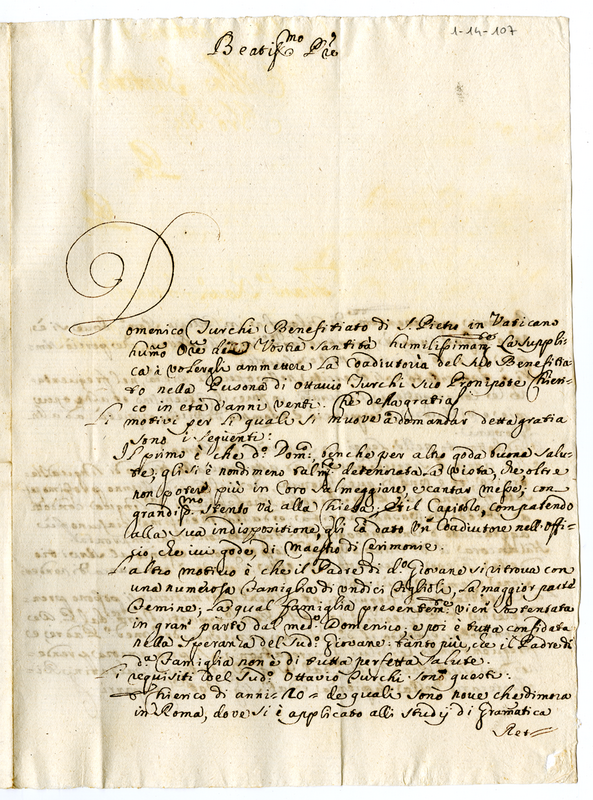 1-14-107
Beatiss.mo P're
Domenico Turchi Benefitiato di S. Pietro in Vaticano
hum.o Ore della Vostra Santità humilissimam.te La suppli-
ca à volergli ammettere La Coadiutoria del suo Benefitia-
to nella Persona di Ottavio Turchi suo Pronipote Chieri-
co in età d'anni venti. Che della gratia
Li motivi per li quali si muove à domandar detta gratia
sono i seguenti:
Il primo è che d.o Dom.o benche per altro goda buona Salu-
te, gli si è nondimeno talm.te deteriorata La vista, che oltre
non poter più in Coro Salmeggiare, e cantar messe, con
grandiss.mo stento và alla Chiesa; Et il Capitolo, compatendo
alla sua indispositione, gli hà dato Un Coadiutore nell'offi-
zio, che ivi gode, di Maestro di Cerimonie.
L'altro motivo è che il Padre di d.o Giovane si ritrova con
una numerosa Famiglia di undici Figlioli, La maggior parte
Femine; La qual famiglia presentem.te vien sostentata
in gran parte dal med.o Domenico, e poi è tutta confidata
nella Speranza del Sud.o Giovane: tanto più, che il Padre di
d.a Famiglia non è di tutta perfetta Salute.
I requisiti del Sud.o Ottavio Turchi sono questi:
È Chierico di anni = 20 = de quali sono nove che dimora
in Roma, dove si è applicato alli studij di Gramatica
Ret=